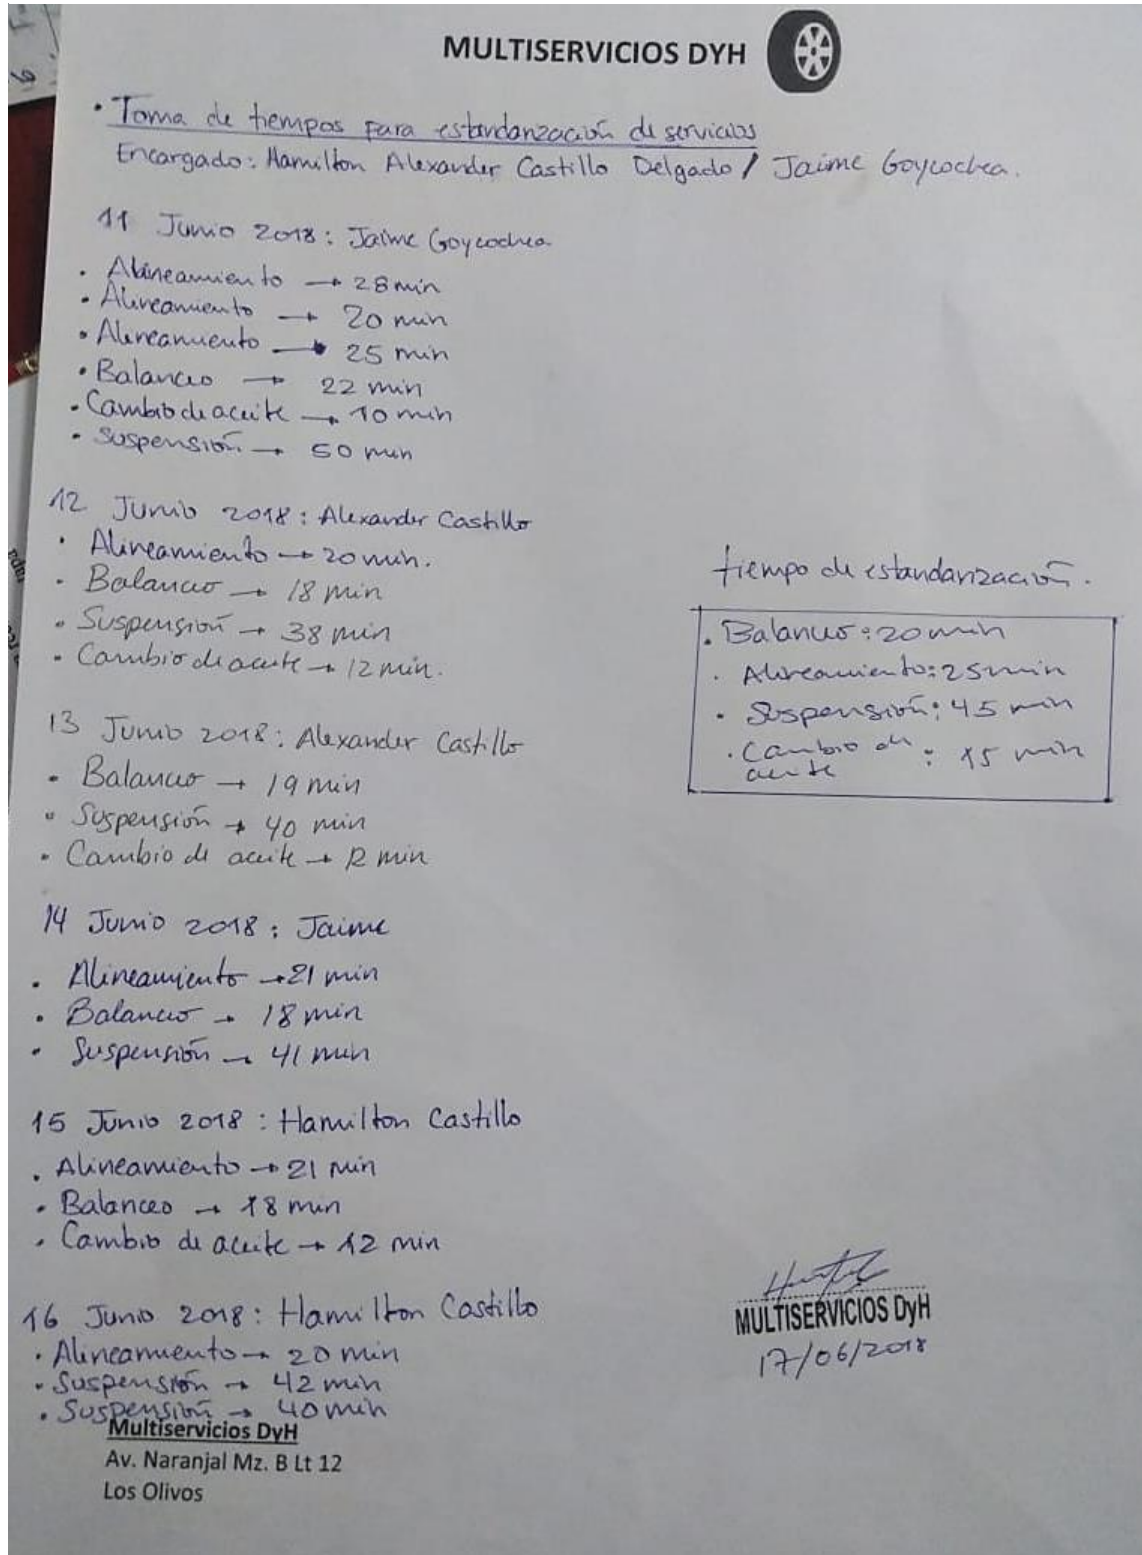 MULTISERVICIOS DYH
• Toma de tiempos para estandarización de servicios
Encargado: Hamilton Alexander Castillo Delgado / Jaime Goycochea.
11 Junio 2018: Jaime Goycochea
• Alineamiento → 28 min
• Alineamiento → 20 min
• Alineamiento → 25 min
• Balanceo → 22 min
• Cambio de aceite → 10 min
• Suspensión → 50 min
12 Junio 2018: Alexander Castillo
• Alineamiento → 20 min.
• Balanceo → 18 min
• Suspensión → 38 min
• Cambio de aceite → 12 min.
13 Junio 2018: Alexander Castillo
• Balanceo → 19 min
• Suspensión → 40 min
• Cambio de aceite → 12 min
14 Junio 2018: Jaime
• Alineamiento → 21 min
• Balanceo → 18 min
• Suspensión → 41 min
15 Junio 2018: Hamilton Castillo
• Alineamiento → 21 min
• Balanceo → 18 min
• Cambio de aceite → 12 min
16 Junio 2018: Hamilton Castillo
• Alineamiento → 20 min
• Suspensión → 42 min
• Suspensión → 40 min
tiempo de estandarización.
• Balanceo: 20 min
• Alineamiento: 25 min
• Suspensión: 45 min
• Cambio de : 15 min
aceite
MULTISERVICIOS DyH
17/06/2018
Multiservicios DyH
Av. Naranjal Mz. B Lt 12
Los Olivos